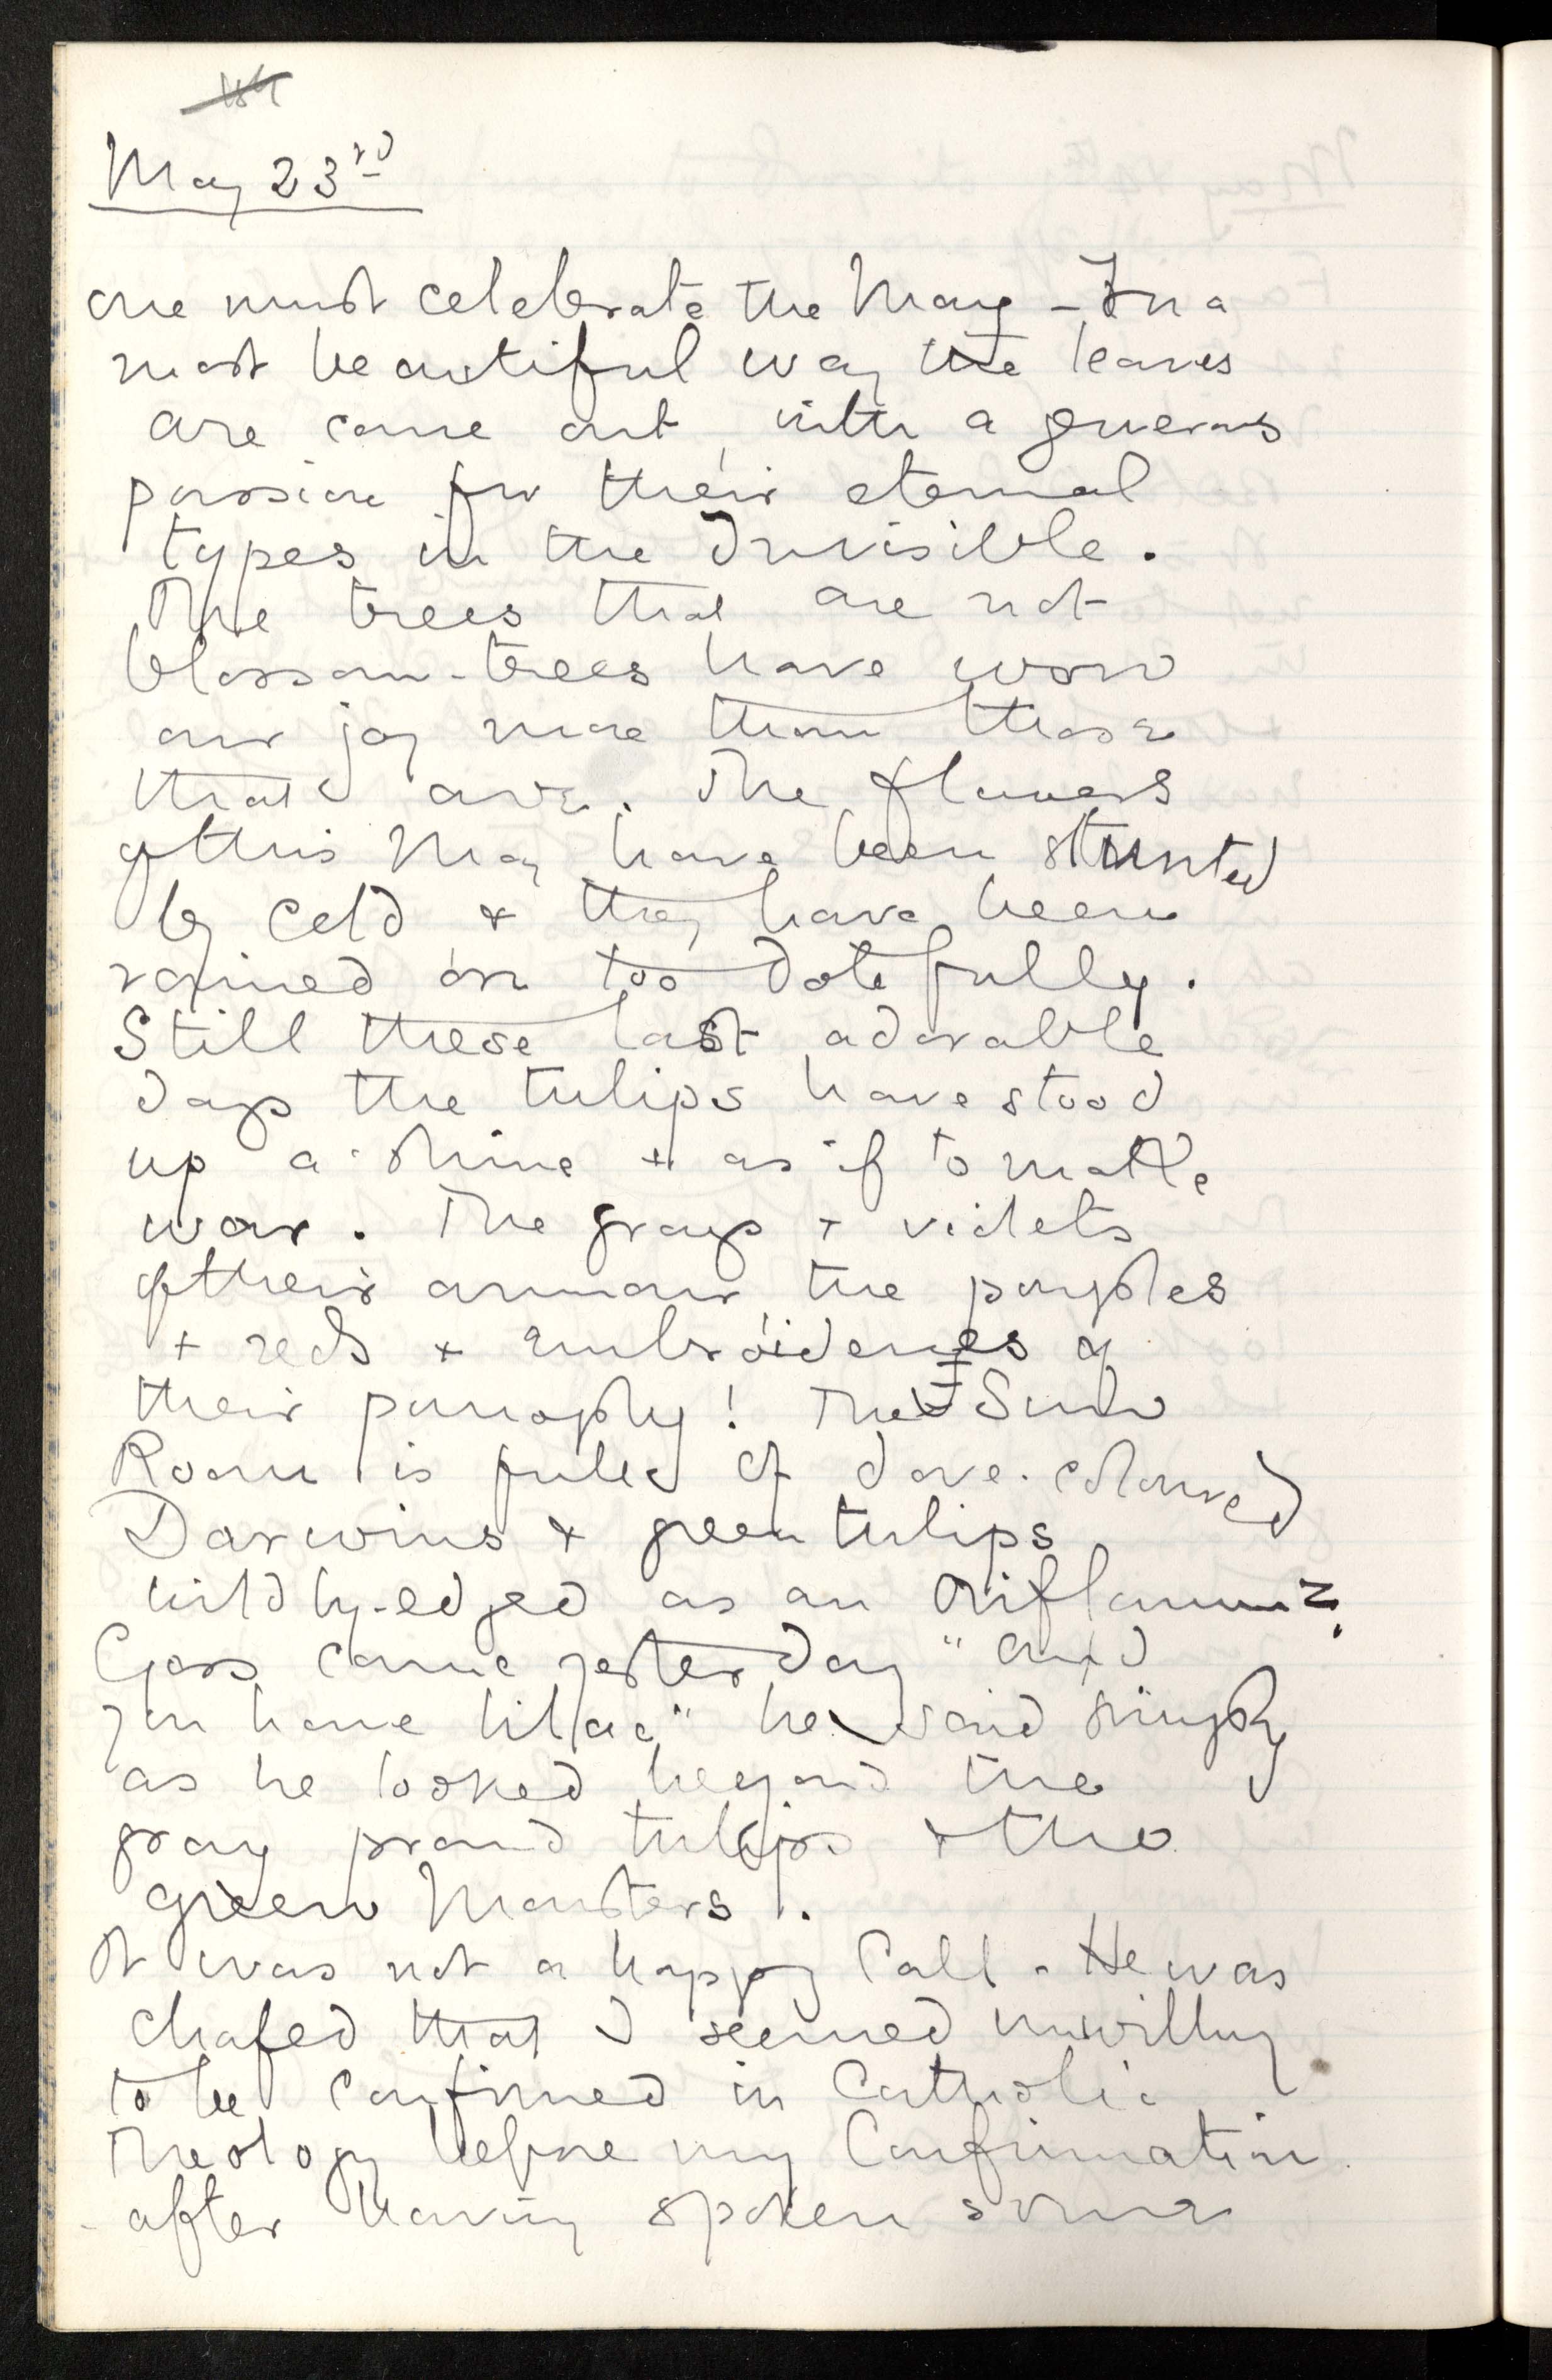 May 23rd
One must celebrate the May - In a
most beautiful way the leaves
are come out, with a generous
passion for their eternal
types in the Invisible.
The trees that are not
blossom-trees have won
our joy more than those
that are. The flowers
of this May have been stunted
by cold & they have been
rained on too dolefully.
Still these last adorable
days the tulips have stood
up a-shine & as if to make
war. The grays + violets
of their armour, the purples
+ reds + embroideries of
their panoply! The Sun
Room is full of dove-coloured
Darwins & green tulips
wildly-edged as an Oriflamme.
Goss came yesterday "And
you have lilac" he said simply
as he looked beyond the
gray proud tulips & the
green Monsters.
It was not a happy Call - He was
chafed that I seemed unwilling
to be confirmed in Catholic
Theology before my Confirmation
- after having spoken some